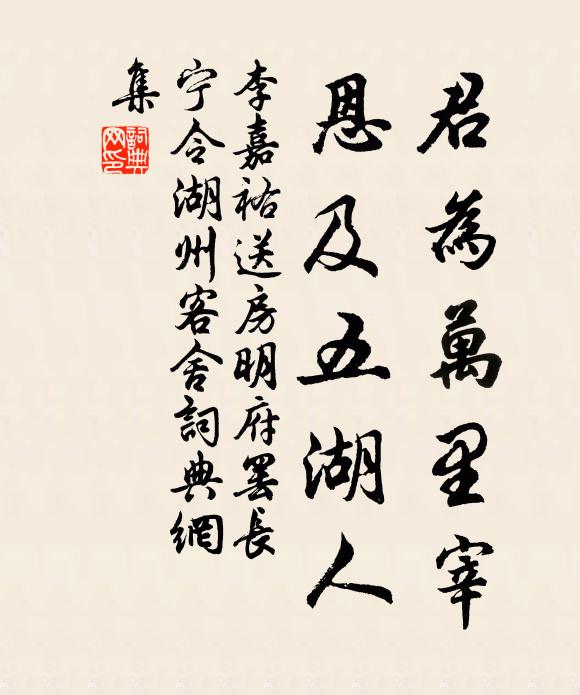 君為萬里宰
恩及五湖人
李嘉祐送房明府罢長
宁令湖州客舍詞典網
集
詞典
网印